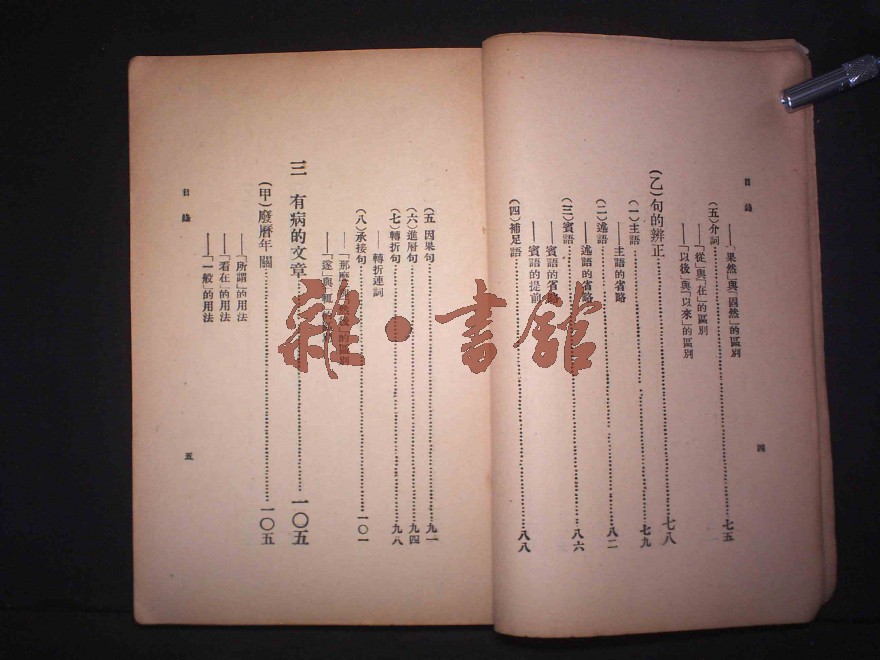 目錄
——「果然」與「固然」的區別
（五）介詞……七五
——「從」與「在」的區別
——「以後」與「以來」的區別
（乙）句的辨正……七八
（一）主語……七九
——主語的省略
（二）述語……八二
——述語的省略
（三）賓語……八六
——賓語的省略
——賓語的提前
（四）補足語……八八
四
目錄
（五）因果句……九一
（六）進層句……九四
（七）轉折句……九八
——轉折連詞
（八）承接句……一〇一
——「那麼」與「然後」的區別
——「遂」與「輒」的區別
三 有病的文章……一〇五
（甲）廢曆年關……一〇五
——「所謂」的用法
——「看在」的用法
——「一般」的用法
五
雜·書館